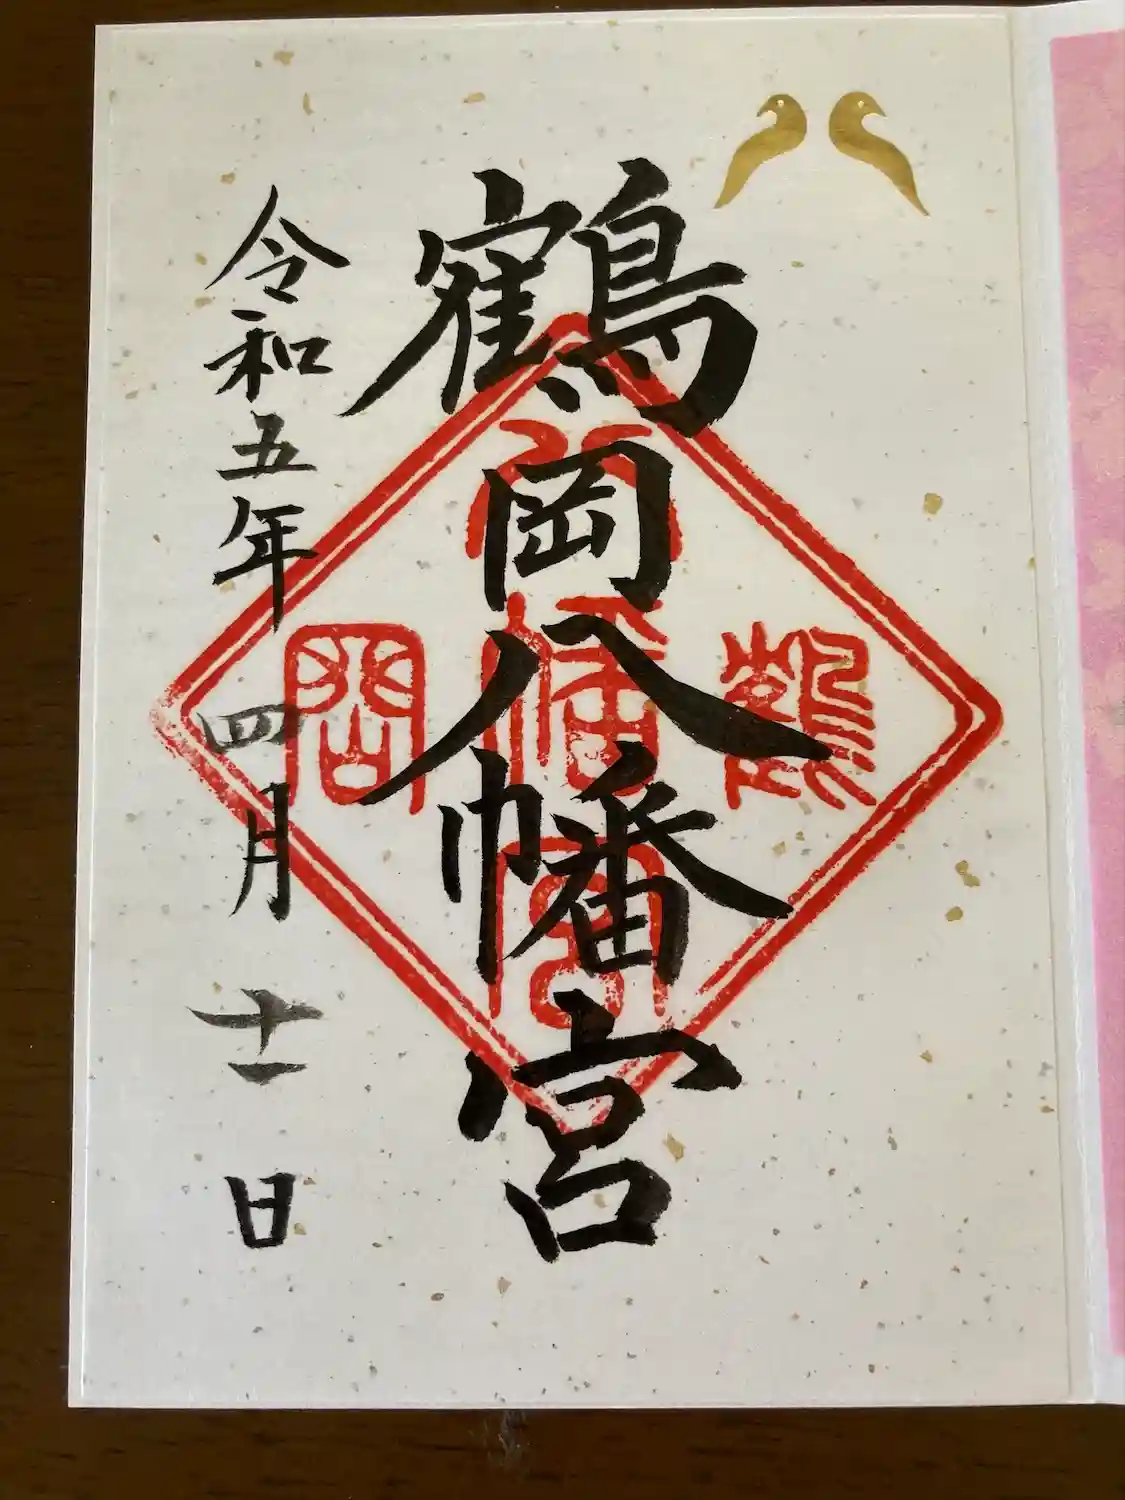 鶴岡八幡宮
鶴岡八幡宮
令和五年四月十一日